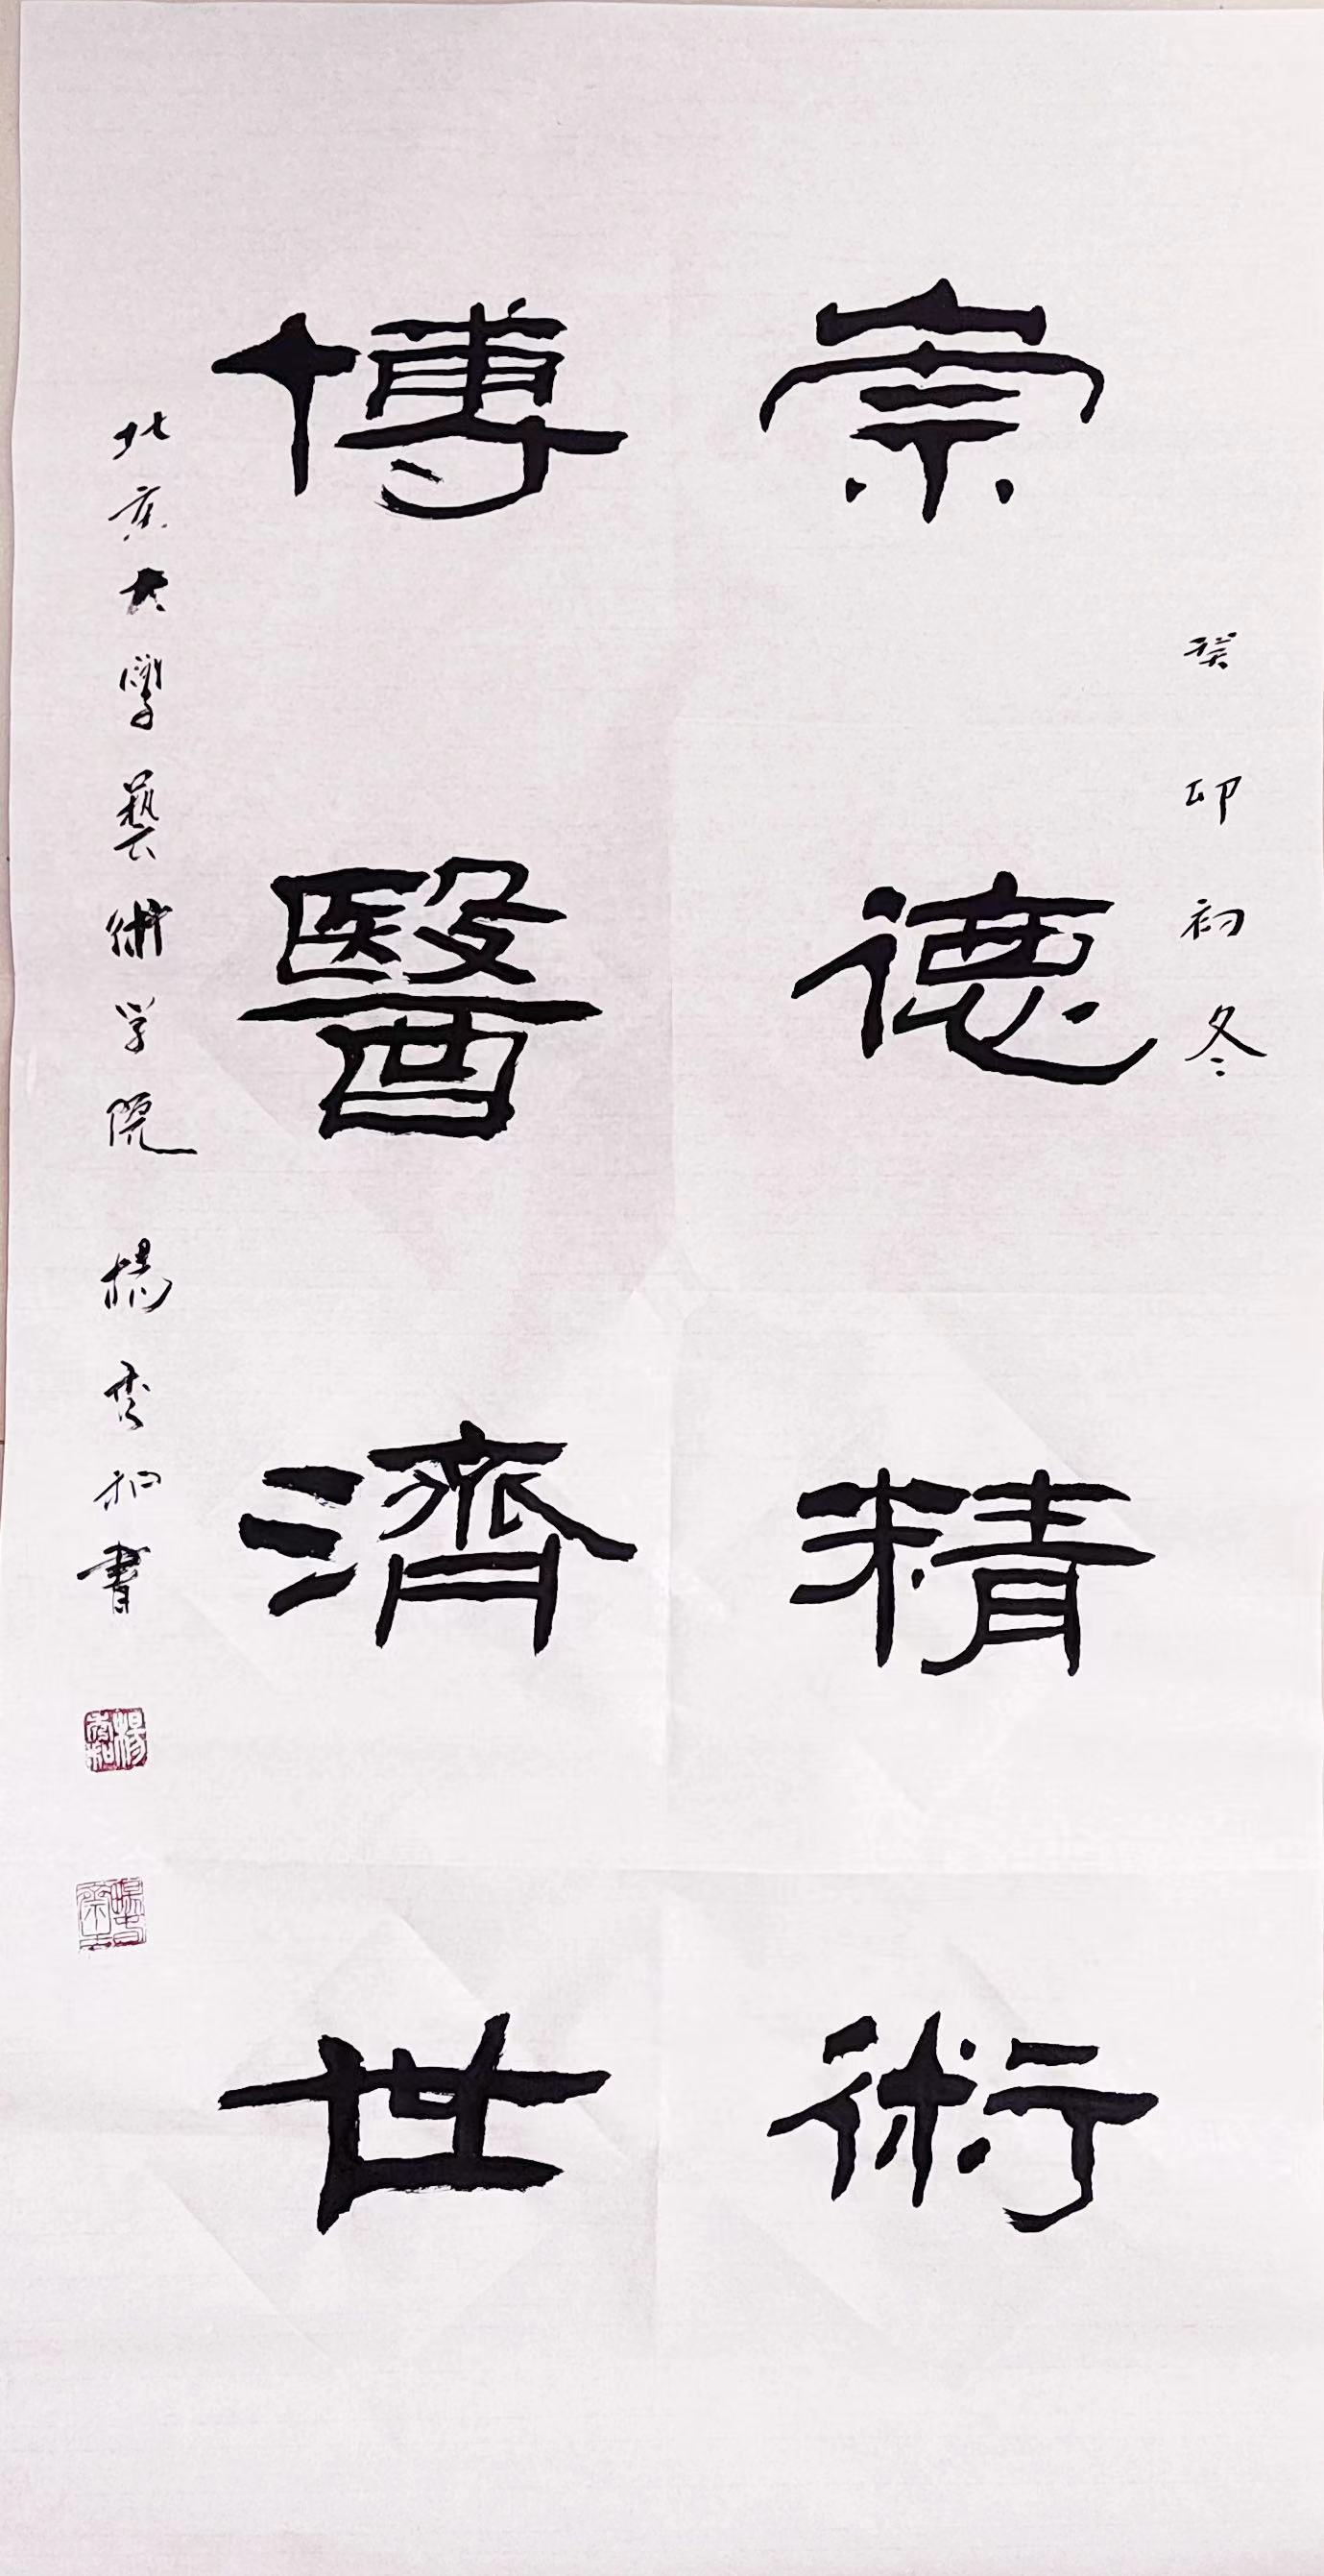 癸卯初冬
崇德精術
博醫濟世
北京大學藝術学院 楊秀和書
楊秀和